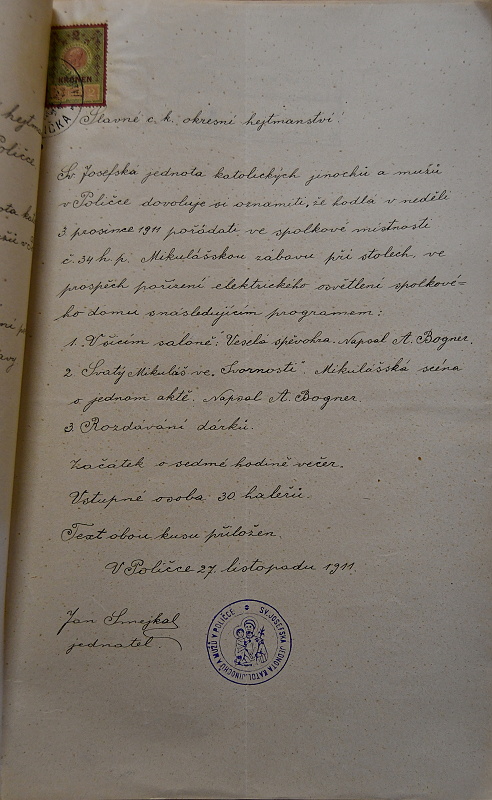 2
KRONEN
IČKA
Slavné c. k. okresní hejtmanství.
Sv. Josefská jednota katolických jinochů a mužů
v Poličce dovoluje si oznámiti, že hodlá v neděli
3. prosince 1911 pořádati ve spolkové místnosti
č. 34 h. p. Mikulášskou zábavu při stolech, ve
prospěch pořízení elektrického osvětlení spolkové-
ho domu s následujícím programem:
1. V šicím saloně: Veselá spěvohra. Napsal A. Bogner.
2. Svatý Mikuláš ve „Svornosti". Mikulášská scéna
o jednom aktě. Napsal A. Bogner.
3. Rozdávání dárků.
Začátek o sedmé hodině večer.
Vstupné osoba 30 haléřů.
Text obou kusu přiložen.
V Poličce 27. listopadu 1911.
Jan Smejkal
jednatel.
SV. JOSEFSKÁ JEDNOTA KATOL. JINOCHŮ A MUŽŮ V POLIČCE